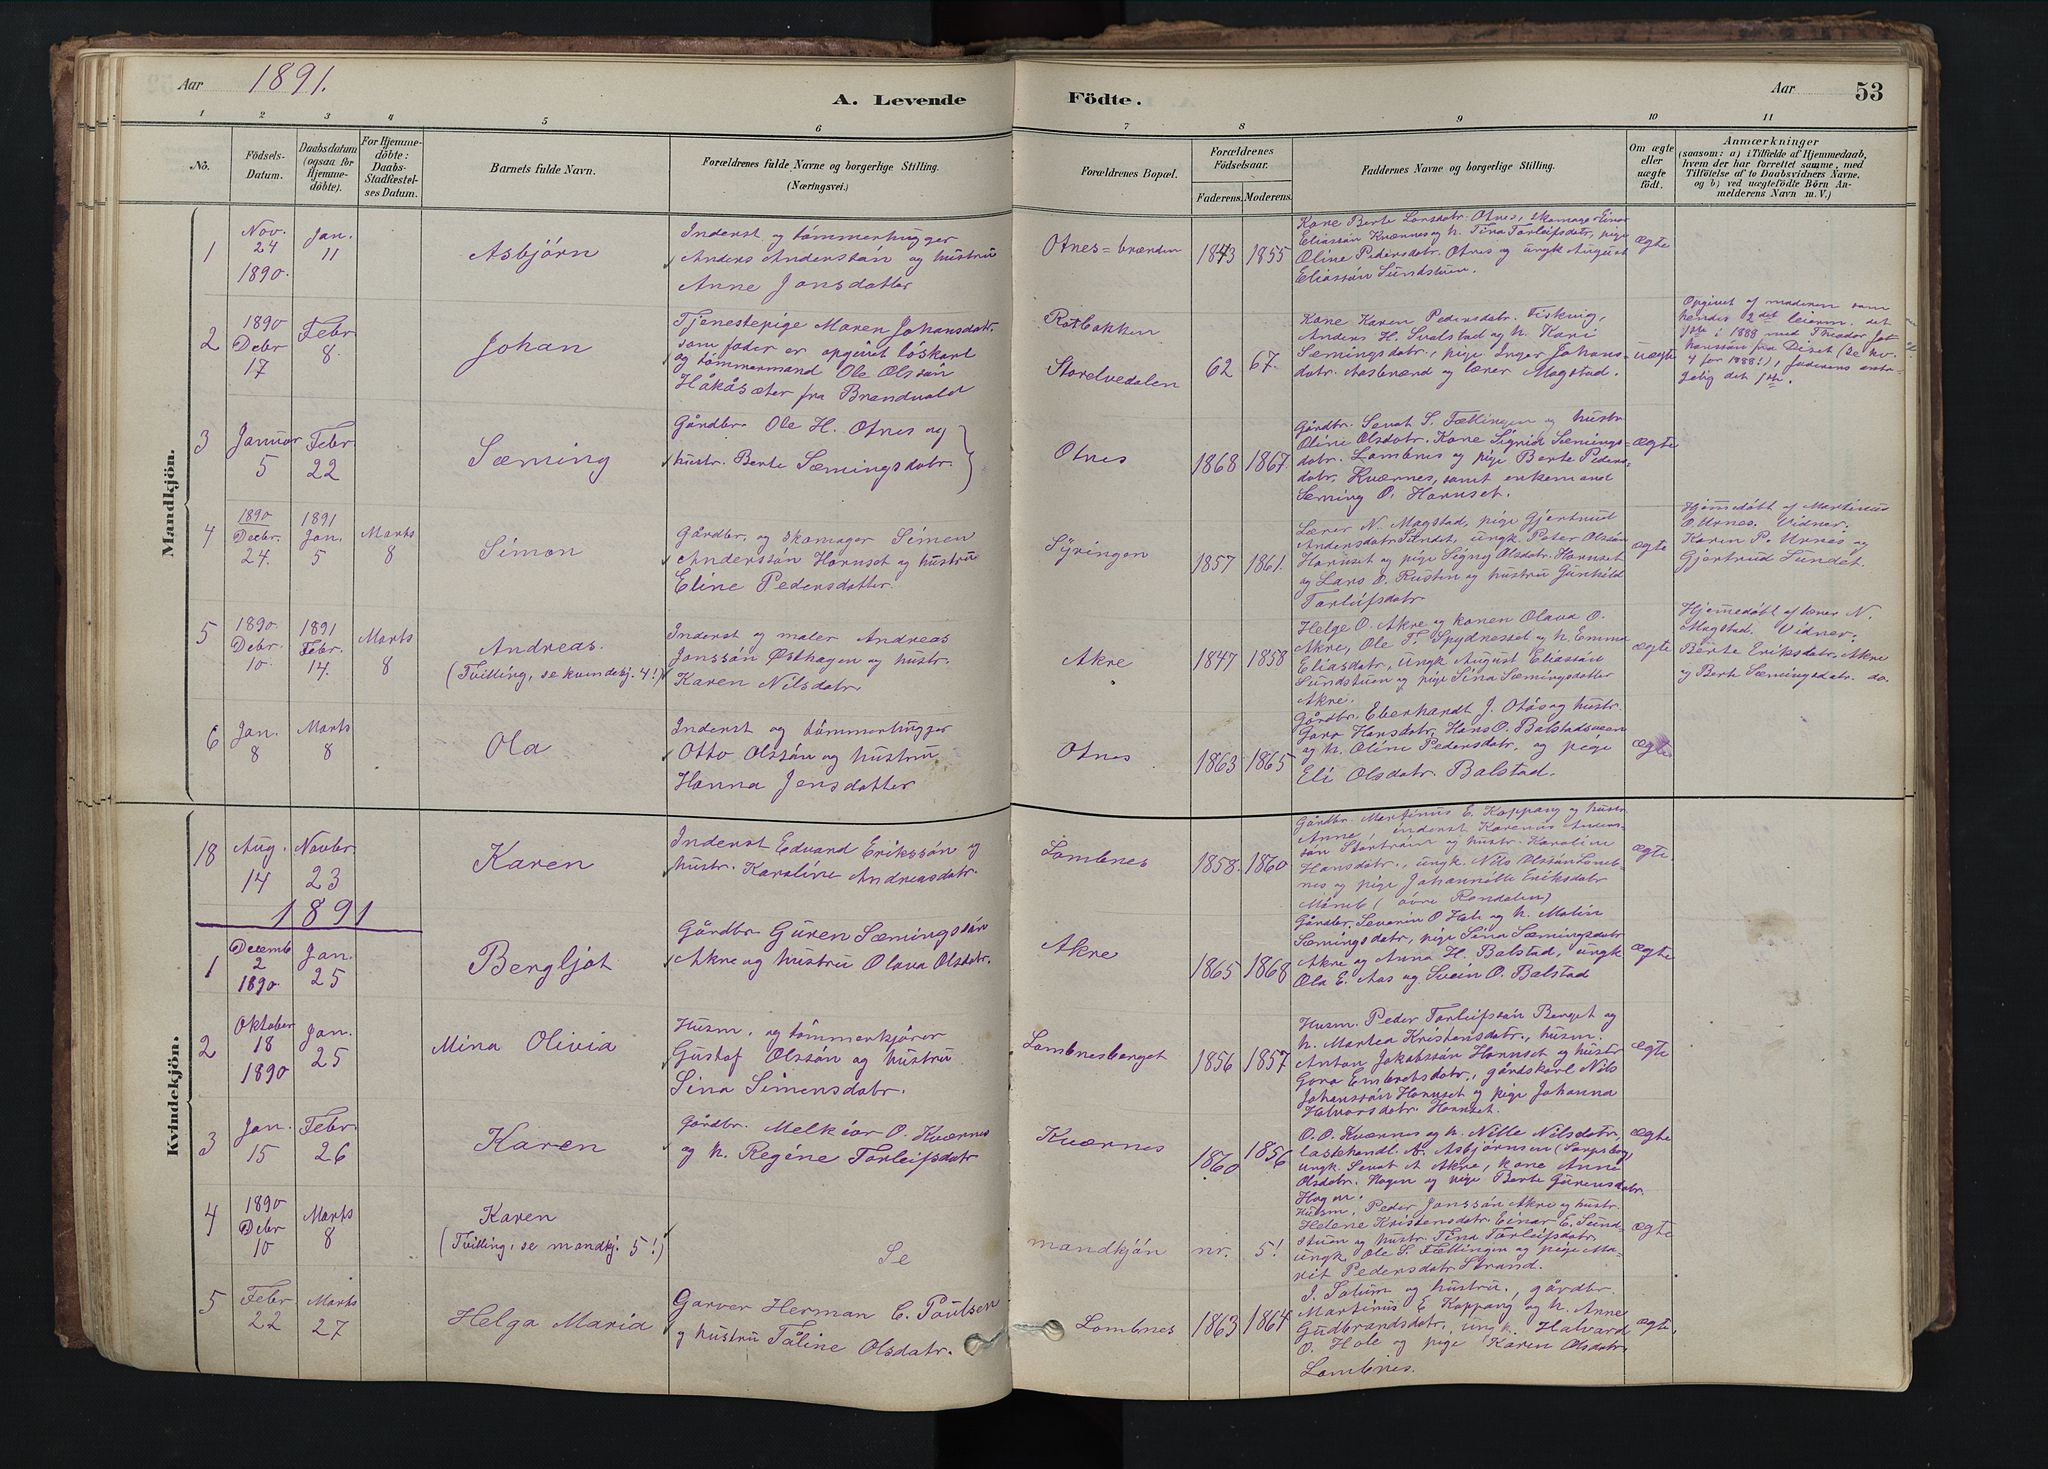 Aar 1891.
A. Levende Födte.
Aar 53
1 2 3 4 5 6 7 8 9 10 11
No.
Födsels-Datum.
Daabsdatum (ogsaa för Hjemmedöbte).
For Hjemmedöbte: Daabs-Stadfæstelses Datum.
Barnets fulde Navn.
Forældrenes fulde Navne og borgerlige Stilling.
(Næringsvei.)
Forældrenes Bopæl.
Forældrenes Födselsaar.
Faderens. Moderens.
Faddernes Navne og borgerlige Stilling.
Om ægte eller uægte födt.
Anmærkninger
(saasom: a) i Tilfælde af Hjemmedaab,
hvem der har forrettet samme, med
Tilföielse af to Daabsvidners Navne,
og b) ved uægtefödte Börn Anmelderens Navn m. V.)
Mandkjön.
1
Nov. 24 1890.
Jan. 11
Asbjörn
Inderst og tömmerhugger
Anders Anderssön og hustru
Anne Jonsdatter
Otnes=brænden
1843 1855
Kone Berte Larsdatr. Otnes, skomager Einar
Eliassön Kværnes og h. Tina Torleifsdatr, pige
Oline Pedersdatr. Otnes og ungk August
Eliassön Sundstuen.
ægte
2
1890 Debr 17
Febr 8.
Johan
Tjenestepige Maren Johansdatr.
som fader er opgivet löskarl
og tömmermand Ole Olssön
Håkåsæter fra Brandvold
Rotbakken
Storelvedalen
62 67.
Kone Karen Pedersdatr. Fiskvig,
Anders H. Svalstad og h. Kari
Sæmingsdatr., pige Inger Johans-
datr. Aasbrænd og lærer Magstad.
uægte
Opgivet af moderen som
hendes 2det leierm. det
1ste i 1888 med Theodor Jo-
hanssön fra Diset (se no.
4 for 1888!), faderens anta-
gelig det 1ste.
3
Januar 5
Febr 22
Sæming
Gårdbr. Ole H. Otnes og
hustr. Berte Sæmingsdatr.
Otnes
1868 1867.
Gårdbr. Sevat S. Fællingen og hustr
Oline Olsdatr. Kone Sigrid Sæmings-
datr. Lombnes og pige Berte Peders-
datr. Kværnes, samt enkemand
Sæming O. Hornset.
ægte
4
1890 Decbr. 24.
1891 Jan. 5
Marts 8
Simon
Gårdbr. og skomager Simen
Anderssön Hornset og hustru
Eline Pedersdatter
Syringen
1857 1861.
Lærer N. Magstad, pige Gjertrud
Andersdatr Sundet, ungk. Peter Olssön
Hornset og pige Signy Olsdatr. Hornset
og Lars O. Rusten og hustru Gunhild
Torleifsdatr
ægte
Hjemmedöbt af Martinus
O. Urnes. Vidner:
Karen P. Urnes og
Gjertrud Sundet.
5
1890. Debr. 10.
1891 Febr. 14.
Marts 8
Andreas.
(Tvilling, se kvindekj. 4!)
Inderst og maler Andreas
Jonssön Østhagen og hustr.
Karen Nilsdatr.
Akre
1847 1858
Helge O. Akre og konen Olava O.
Akre, Ole T. Spydnesset og h. Emma
Eliasdatr, ungk August Eliassön
Sundstuen og pige Sina Sæmingsdatter
Akre.
ægte
Hjemedöbt af lærer N.
Magstad. Vidner:
Berte Eriksdatr. Akre
og Berte Sæmingsdatr. do.
6
Jan. 8
Marts 8
Ola
Inderst og tömmerhugger
Otto Olssön og hustru
Hanna Jensdatter
Otnes
1863 1865
Gårdbr. Eberhardt J. Otås og hustr.
Goro Hansdatr. Hans O. Balstadmoen
og h. Oline Pedersdatr. og pige
Eli Olsdatr. Balstad.
ægte
Kvindekjön.
18
Aug. 14
Novbr. 23
Karen
Inderst Edvard Erikssön og
hustr. Karoline Andreasdatr.
Lombnes
1858. 1860
Gårdbr. Martinus E. Koppang og hustr
Anne, inderst Karenus Anders-
sön Stortrøen og hustr. Karoline
Hansdatr., ungk. Nils Olssön Lomb-
nes og pige Johannette Eriksdatr
(övre Rendalen)
ægte
1891
1
Decemb 2 1890.
Jan. 25
Bergljot
Gårdbr Guren Sæmingssön
Akre og hustru Olava Olsdatr.
Akre
1865 1868
Gårdbr. Severin O. Hole og h. Malin
Sæmingsdatr, pige Sina Sæmingsdatr
Akre og Anna H. Balstad, ungk
Ola E. Aas og Svein O. Balstad
ægte
2
Oktober 18 1890
Jan. 25
Mina Olivia
Husm. og tömmerkjörer
Gustaf Olssön og hustru
Sina Simensdatr.
Lombnesberget
1856 1857
Husm. Peder Torleifssön Berget og
h. Martea Kristensdatr., husm.
Anton Jakobssön Hornset og hustr
Goro Embretsdatr., gårdskarl Nils
Johanssön Hornset og pige Johanna
Halvorsdatr. Hornset.
ægte
3
Jan. 15
Febr. 26
Karen
Gårdbr. Melkior O. Kværnes
og h. Regine Torleifsdatr
Kværnes
1860 1856
O. O. Kværnes og h. Nille Nilsdatr,
lastehandl. A. Asbjörnsen (Sarpsborg)
ungk. Sevat A Akre, kone Anne
Olsdatr. Hagen og pige Berte Gurensdatr.
Hagen.
ægte
4
1890 Debr 10
Marts 8
Karen
(Tvilling, se mandkj. 5!)
Se mandkjön nr. 5!
Husm. Peder Jonssön Akre og hustr.
Helene Kristensdatr. Einar E. Sund-
stuen og hustr. Tina Torleifsdatr,
ungk Ole S. Fællingen og pige Ma-
rit Pedersdatr Strand.
ægte
5
Febr 22
Marts 27
Helga Maria
Garver Herman C. Poulsen
og hustru Taline Olsdatr.
Lombnes
1863 1864
J. Solum og hustru, gårdbr.
Martinus E Koppang og h. Anne
Gudbrandsdatr, ungk. Halvard
O. Hole og pige Karen Olsdatr.
Lombnes.
ægte.